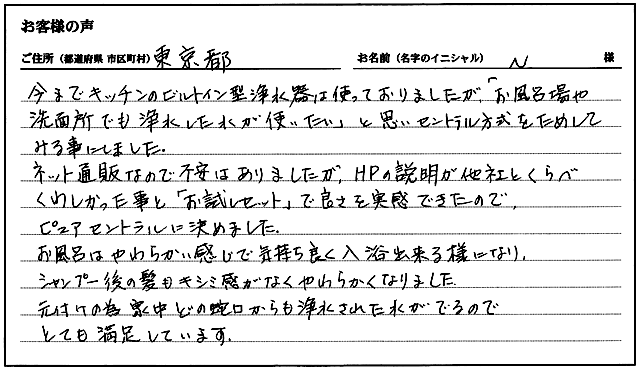 お客様の声
ご住所（都道府県 市区町村） 東京都 お名前（名字のイニシャル） N 様
今までキッチンのビルトイン型浄水器は使っておりましたが、「お風呂場や
洗面所でも浄水した水が使いたい」と思いセントラル方式をためして
みる事にしました。
ネット通販なので不安はありましたが、HPの説明が他社とくらべ
くわしかった事と「お試しセット」で良さを実感できたので、
ピュアセントラルに決めました。
お風呂はやわらかい感じで気持ち良く入浴出来る様になり、
シャンプー後の髪もキシミ感がなくやわらかくなりました。
元付けの為家中どの蛇口からも浄水された水がでるので
とても満足しています。